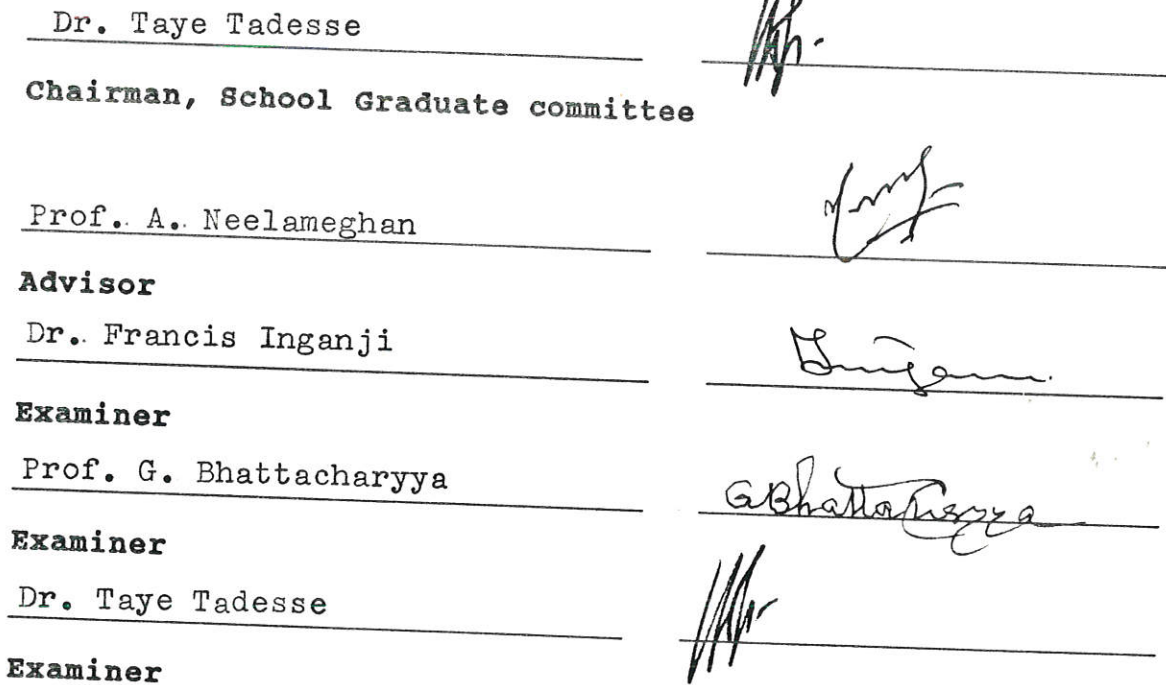 Dr. Taye Tadesse
Chairman, School Graduate committee
Prof. A. Neelameghan
Advisor
Dr. Francis Inganji
Examiner
Prof. G. Bhattacharyya GBhattacharyya
Examiner
Dr. Taye Tadesse
Examiner